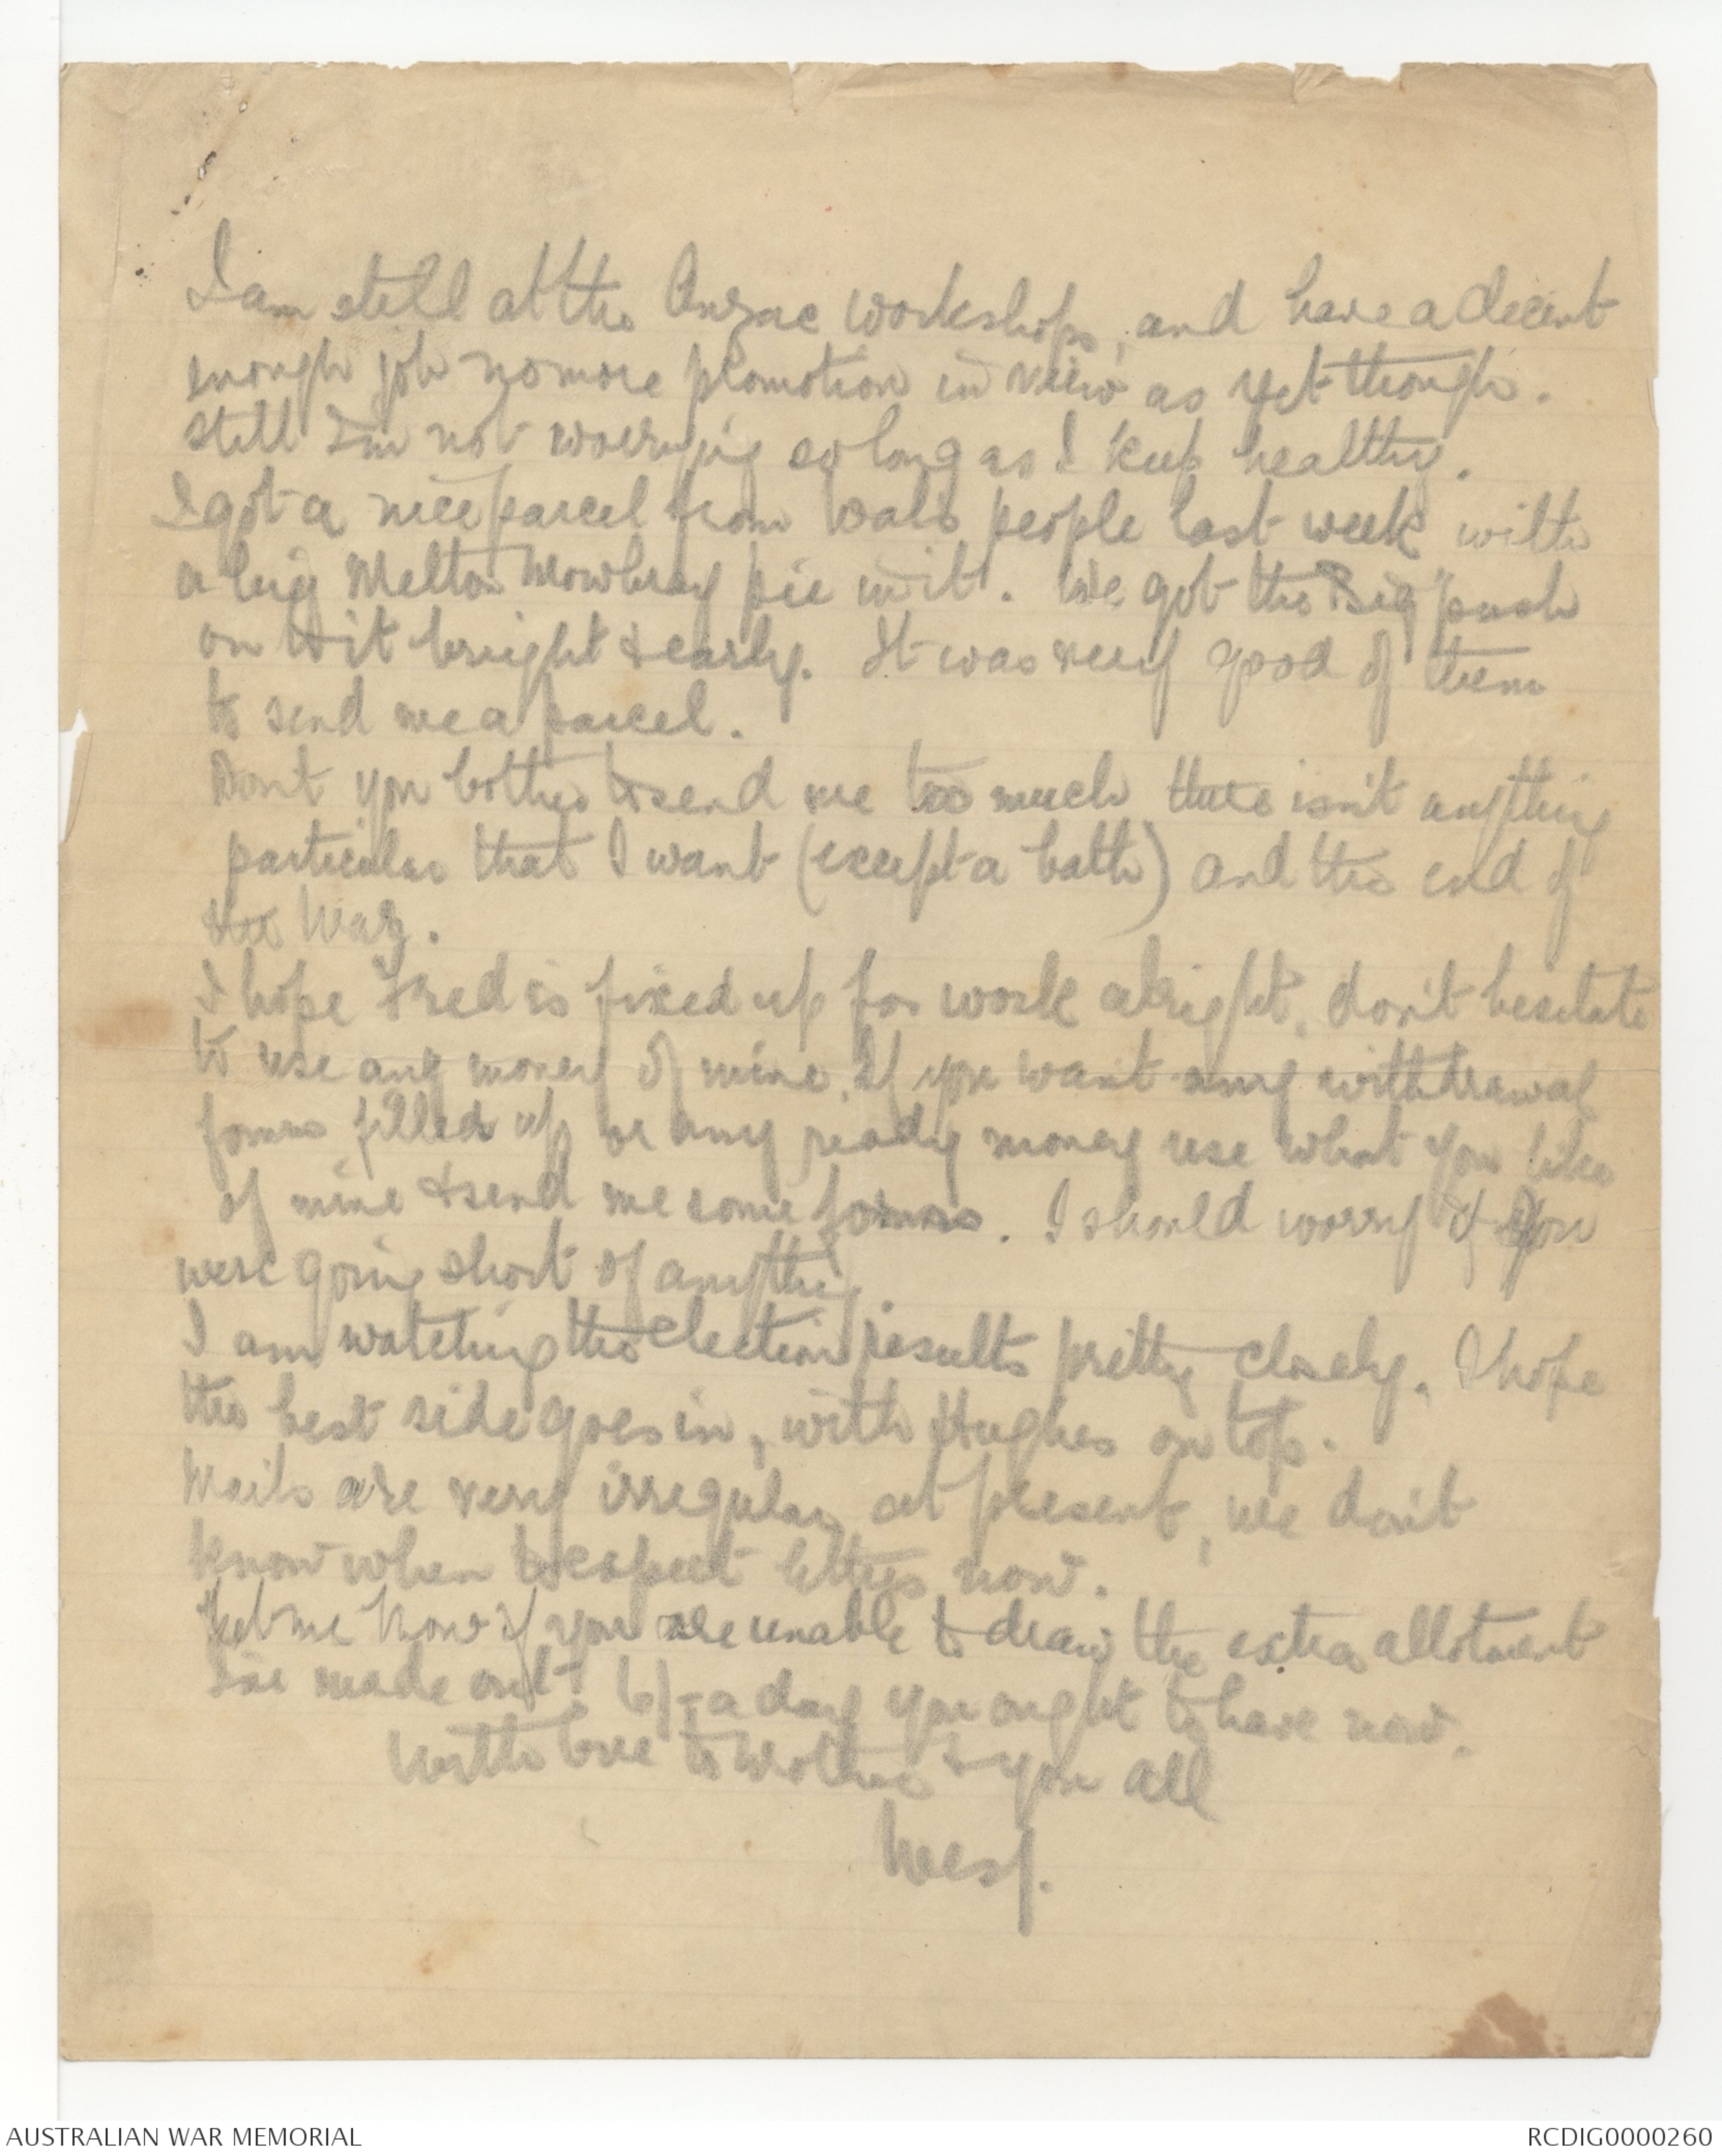 I am still at the Anzac Workshops, and have a decent
enough job no more promotion in view as yet though.
Still I'm not worrying so long as I keep healthy.
I got a nice parcel from Wal's people last week with
a big Melton Mowbray pie in it. We got the Big push
on to it bright & early. It was very good of them
to send me a parcel.
Don't you bother to send me too much there isn't anything
particular that I want (except a bath) and the end of
the War.
I hope Fred is fixed up for work alright, don't hesitate
to use any money of mine. If you want any withdrawal
forms filled up or any ready money use what you like
of mine & send me some forms. I should worry if you
were going short of anything.
I am watching the election results pretty closely. I hope
the best side goes in, with Hughes on top.
Mails are very irregular at present, we don't
know when to expect letters now.
Let me know if you are unable to draw the extra allotment
I've made out. 6/- a day you ought to have now.
With love to Mother & you all
Wesf.
AUSTRALIAN WAR MEMORIAL
RCDIG0000260